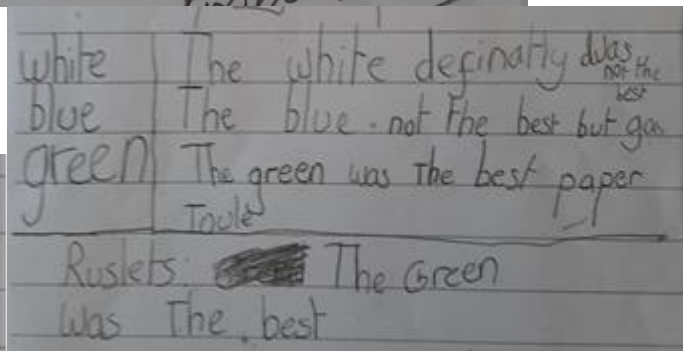 white The white definatly was
not the
best
blue The blue. not The best but
green The green was The best paper
Towle
Ruslets: The Green
was The. best